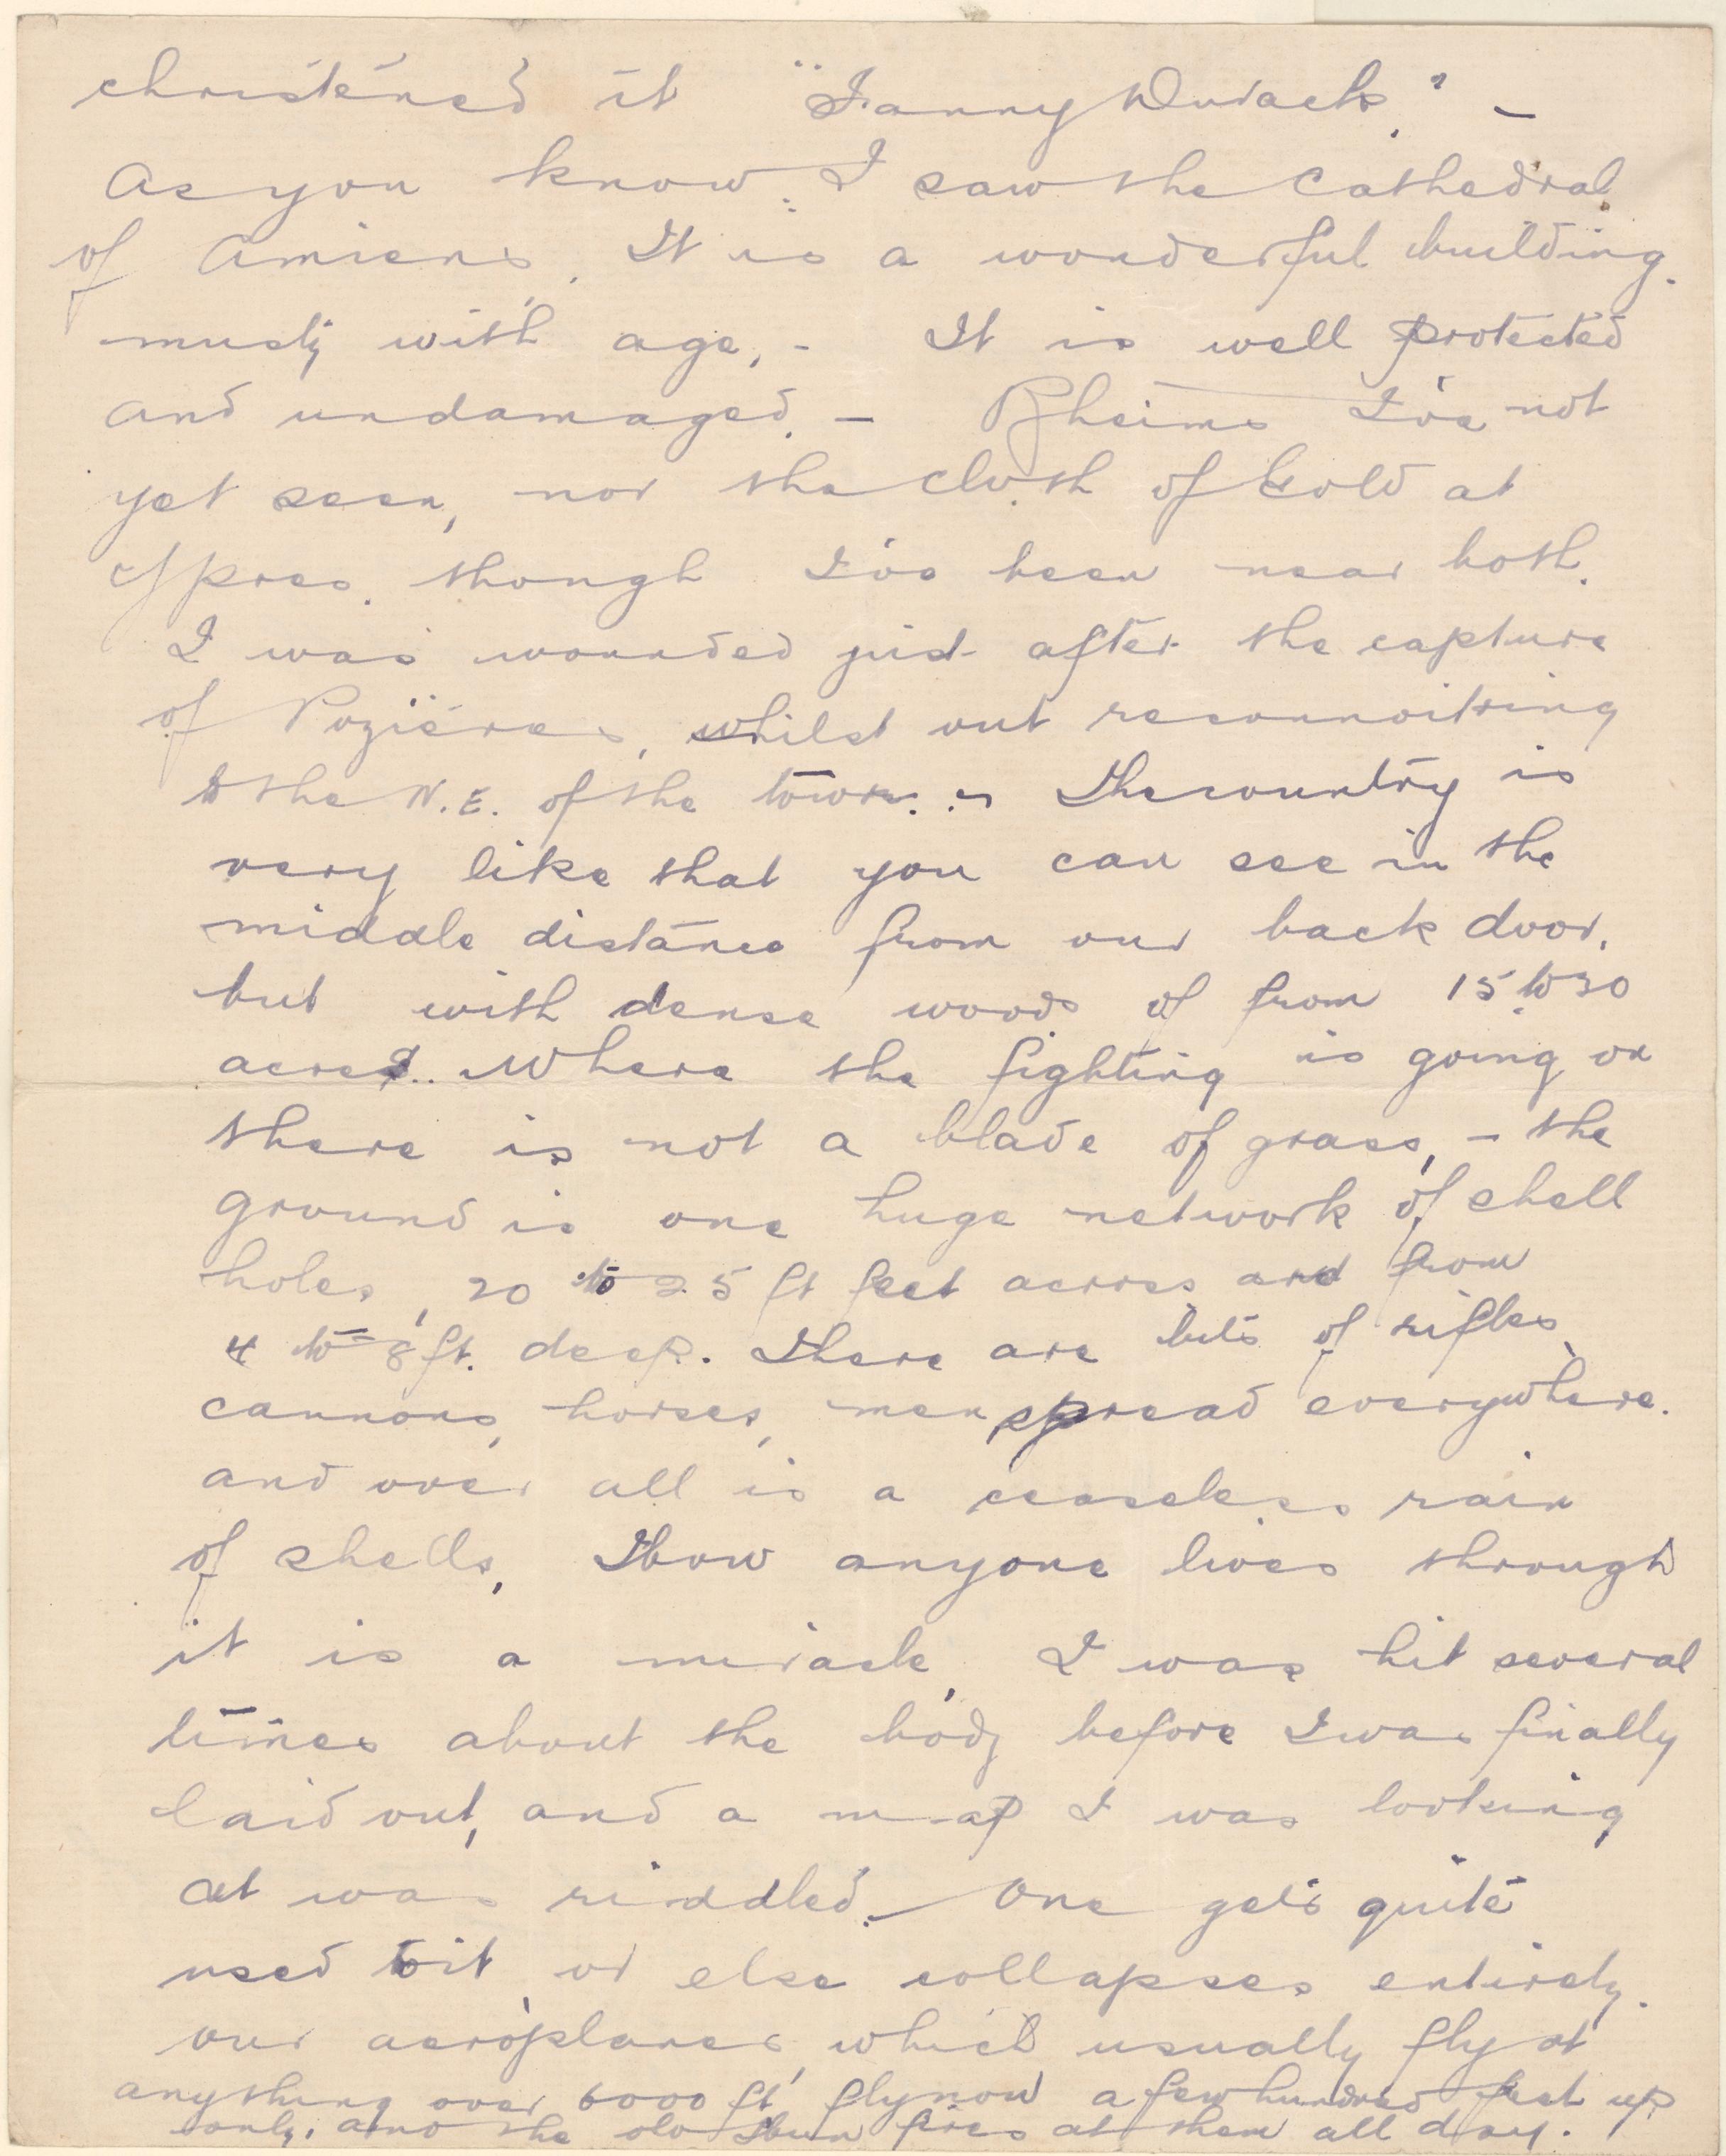 christened it "Fanny Durack." –
As you know I saw the Cathedral
of Amiens. It is a wonderful building.
musty with age, – It is well protected
and undamaged. – Rheims I've not
yet seen, nor the Cloth of Gold at
Ypres, though I've been near both.
I was wounded just after the capture
of Poziéres, whilst out reconnoitring
to the N.E. of the town. – The country is
very like that you can see in the
middle distance from our back door,
but with dense woods of from 15 to 30
acres. Where the fighting is going on
there is not a blade of grass, – the
ground is one huge network of shell
holes, 20 to 25 ft feet across and from
4 to 8 ft. deep. There are bits of rifles,
cannons, horses, men, spread everywhere.
and over all is a ceaseless rain
of shells, How anyone lives through
it is a miracle, I was hit several
times about the body before I was finally
laid out, and a map I was looking
at was riddled. – One gets quite
used to it, or else collapses entirely.
Our aeroplanes, which usually fly at
anything over 6000 ft, fly now a few hundred feet up
only, and the old Hun fires at them all day.